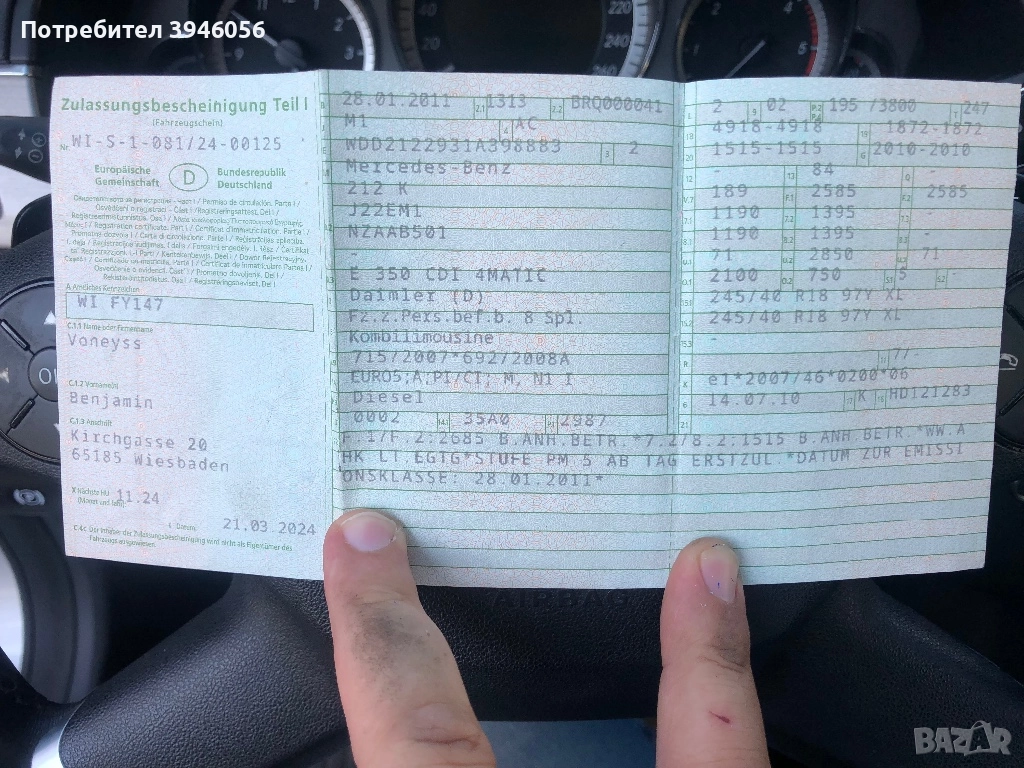 Потребител 3946056
Zulassungsbescheinigung Teil I
(Fahrzeugschein)
Nr. WI-S-1-081/24-00125
Europäische Gemeinschaft
D
Bundesrepublik Deutschland
A Amtliches Kennzeichen
WI FY147
C.1.1 Name oder Firmenname
Voneyss
C.1.2 Vorname(n)
Benjamin
C.1.3 Anschrift
Kirchgasse 20
65185 Wiesbaden
X Nächste HU
(Monat und Jahr) 11.24
Datum 21.03.2024
C.4c Der Inhaber der Zulassungsbescheinigung wird nicht als Eigentümer des
Fahrzeugs ausgewiesen.
28.01.2011 2.1 1313 2.2 BRQ000041
M1 4 AC
WDD2122931A398883 3 2
Mercedes-Benz
212 K
J22EM1
NZAAB501
-
E 350 CDI 4MATIC
Daimler (D)
Fz.z.Pers.bef.b. 8 Spl.
Kombilimousine
715/2007*692/2008A
EURO5;A;PI/CI; M, N1 I
Diesel
0002 14.1 35A0 P.1 2987
2 9 02 195 /3800 T 247
4918-4918 19 1872-1872
1515-1515 G 2010-2010
- 13 84 Q -
189 F.1 2585 F.2 2585
1190 7.2 1395 7.3 -
1190 8.2 1395 8.3 -
71 U.2 2850 71
2100 O.2 750 S.1 5 S.2
245/40 R18 97Y XL
245/40 R18 97Y XL
-
R 11 7/-
K e1*2007/46*0200*06
6 14.07.10 17 K 16 HD121283
21
F.1/F.2:2685 B.ANH.BETR.*7.2/8.2:1515 B.ANH.BETR.*WW.A
HK LT.EGTG*STUFE PM 5 AB TAG ERSTZUL.*DATUM ZUR EMISSI
ONSKLASSE: 28.01.2011*
AIRBAG
BAZAR